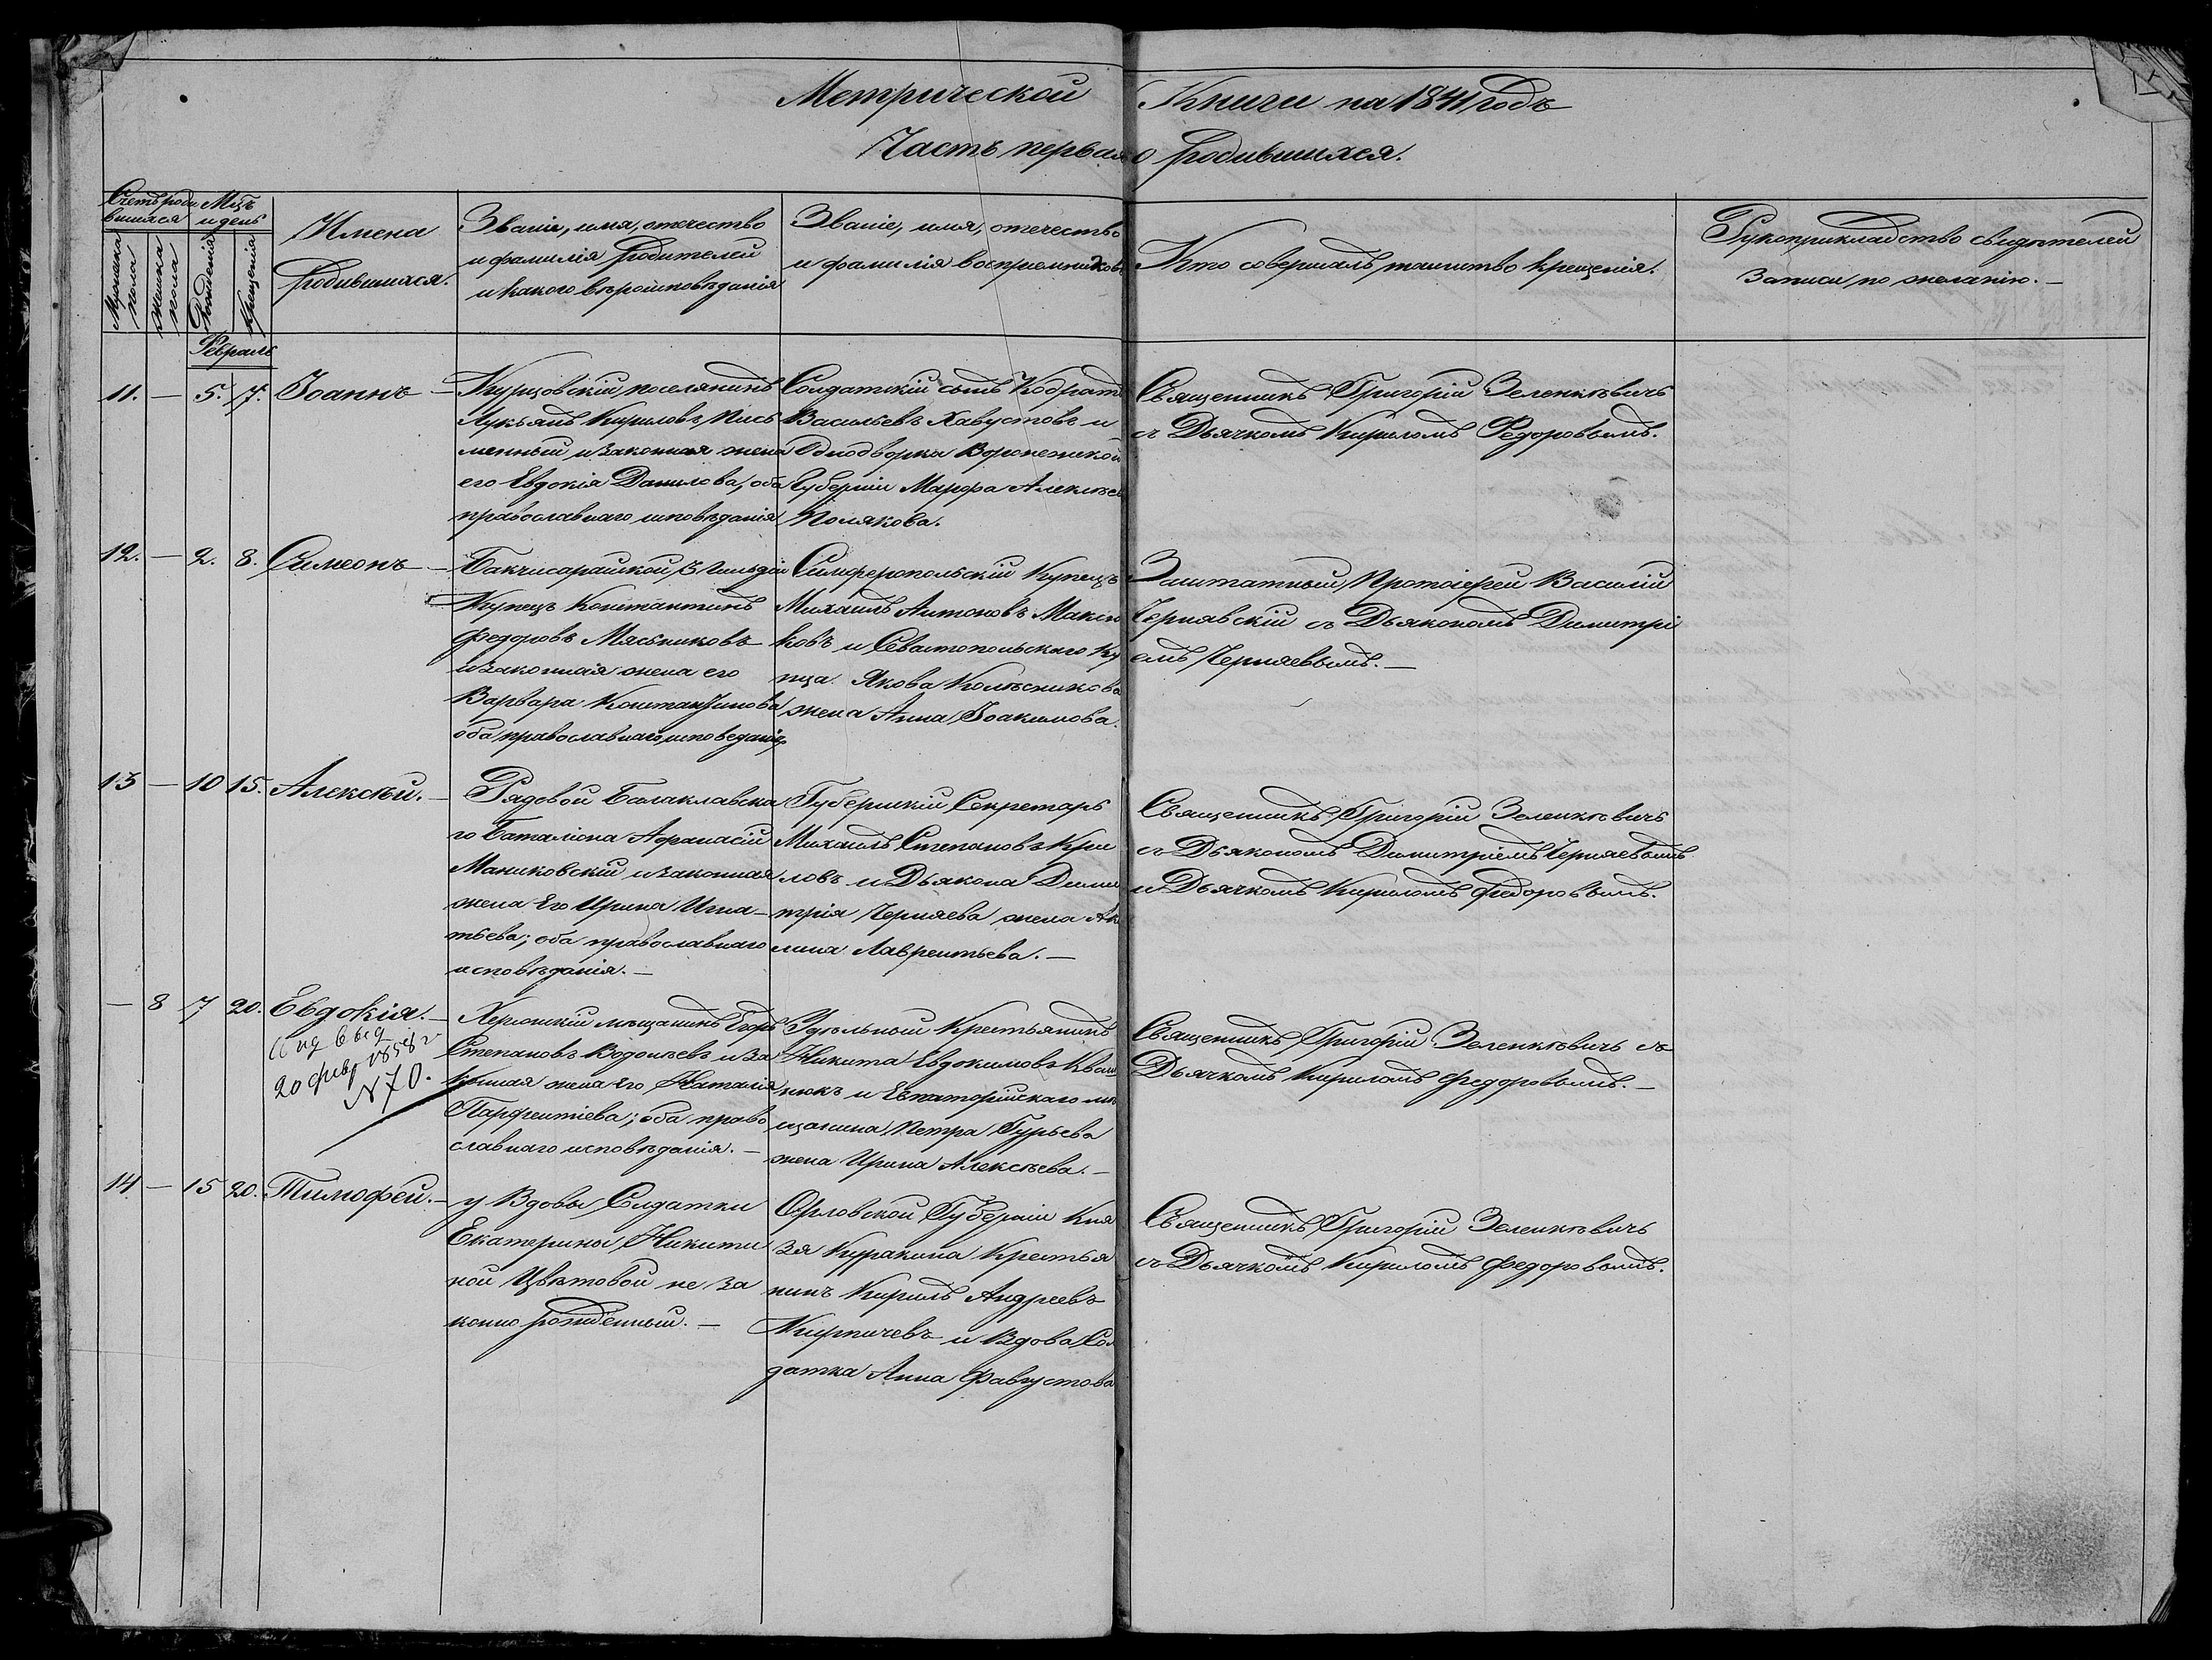 Метрической Книги на 1841 годъ
Часть первая о родившихся.
Счетъ роди Мцъ
вшихся и день
Мужеска пола
Женска пола
Рожденія
Крещенія
Имена
родившихся.
Званіе, имя, отечество
и фамилія родителей
и какого вѣроисповѣданія
Званіе, имя, отечество
и фамилія воспріемниковъ
Кто совершалъ таинство крещенія.
Рукоприкладство свидѣтелей
записи по желанію. —
Февраль
11. — 5. 7. Іоаннъ —
Курцовскій поселянинъ
Лукьянъ Кириловъ Пись
менный и законная жена
его Евдокія Данилова, оба
православнаго исповѣданія
Солдатскій сынъ
Васильевъ Хавустовъ и
Однодворка Воронежской
Губерніи Марфа Алексѣев
Полякова.
Священникъ Григорій Зеленкѣвичъ
съ Дьячкомъ Кириломъ Федоровымъ.
12. — 2. 8. Симеонъ —
Бакчисарайской 3 Гильдіи
Купецъ Константинъ
Федоровъ Мясниковъ
и законная жена его
Варвара Константинова
оба православнаго исповеданія
Симферопольскій Купецъ
Михаилъ Антоновъ Макси
ковъ и Севастопольскаго Ку
пца Якова Колѣсникова
жена Анна Іоакимова.
Заштатный Протоіерей Василій
Чернявскій съ Дьякономъ Димитрі
емъ Черняевымъ. —
13 — 10 15. Алексѣй. —
Рядовой Балаклавска
го Баталіона Афанасій
Маниковскій и законная
жена Его Ирина Игна-
тьева; оба православнаго
исповѣданія. —
Губернскій Секретарь
Михаилъ Степановъ Кры
ловъ и Дьякона Дими
трія Черняева жена Аку
лина Лаврентьева. —
Священникъ Григорій Зеленкѣвичъ
съ Дьякономъ Димитріемъ Черняевымъ
и Дьячкомъ Кириломъ Федоровымъ.
— 8 7 20. Евдокія. —
20 фев. 1858 г
N 70.
Херсонскій мѣщанинъ Егоръ
Степановъ Водопьевъ и за
конная жена Его Наталія
Парфентіева; оба право
славнаго исповѣданія. —
Удѣльный Крестьянинъ
Никита Евдокимовъ Кваш
нюкъ и Евпаторійскаго мѣ
щанина Петра Гурьева
жена Ирина Алексѣева. —
Священникъ Григорій Зеленкѣвичъ съ
Дьячкомъ Кириломъ Федоровымъ. —
14 — 15 20. Тимофей. —
у Вдовы Солдатки
Екатерины Никити
ной Цвѣтовой не за
конно рожденный. —
Орловской Губерніи Кня
зя Куракина Крестья
нинъ Кирилъ Андреевъ
Кирпичевъ и Вдова Сол
датка Анна Фавустова
Священникъ Григорій Зеленкѣвичъ
съ Дьячкомъ Кириломъ Федоровымъ.